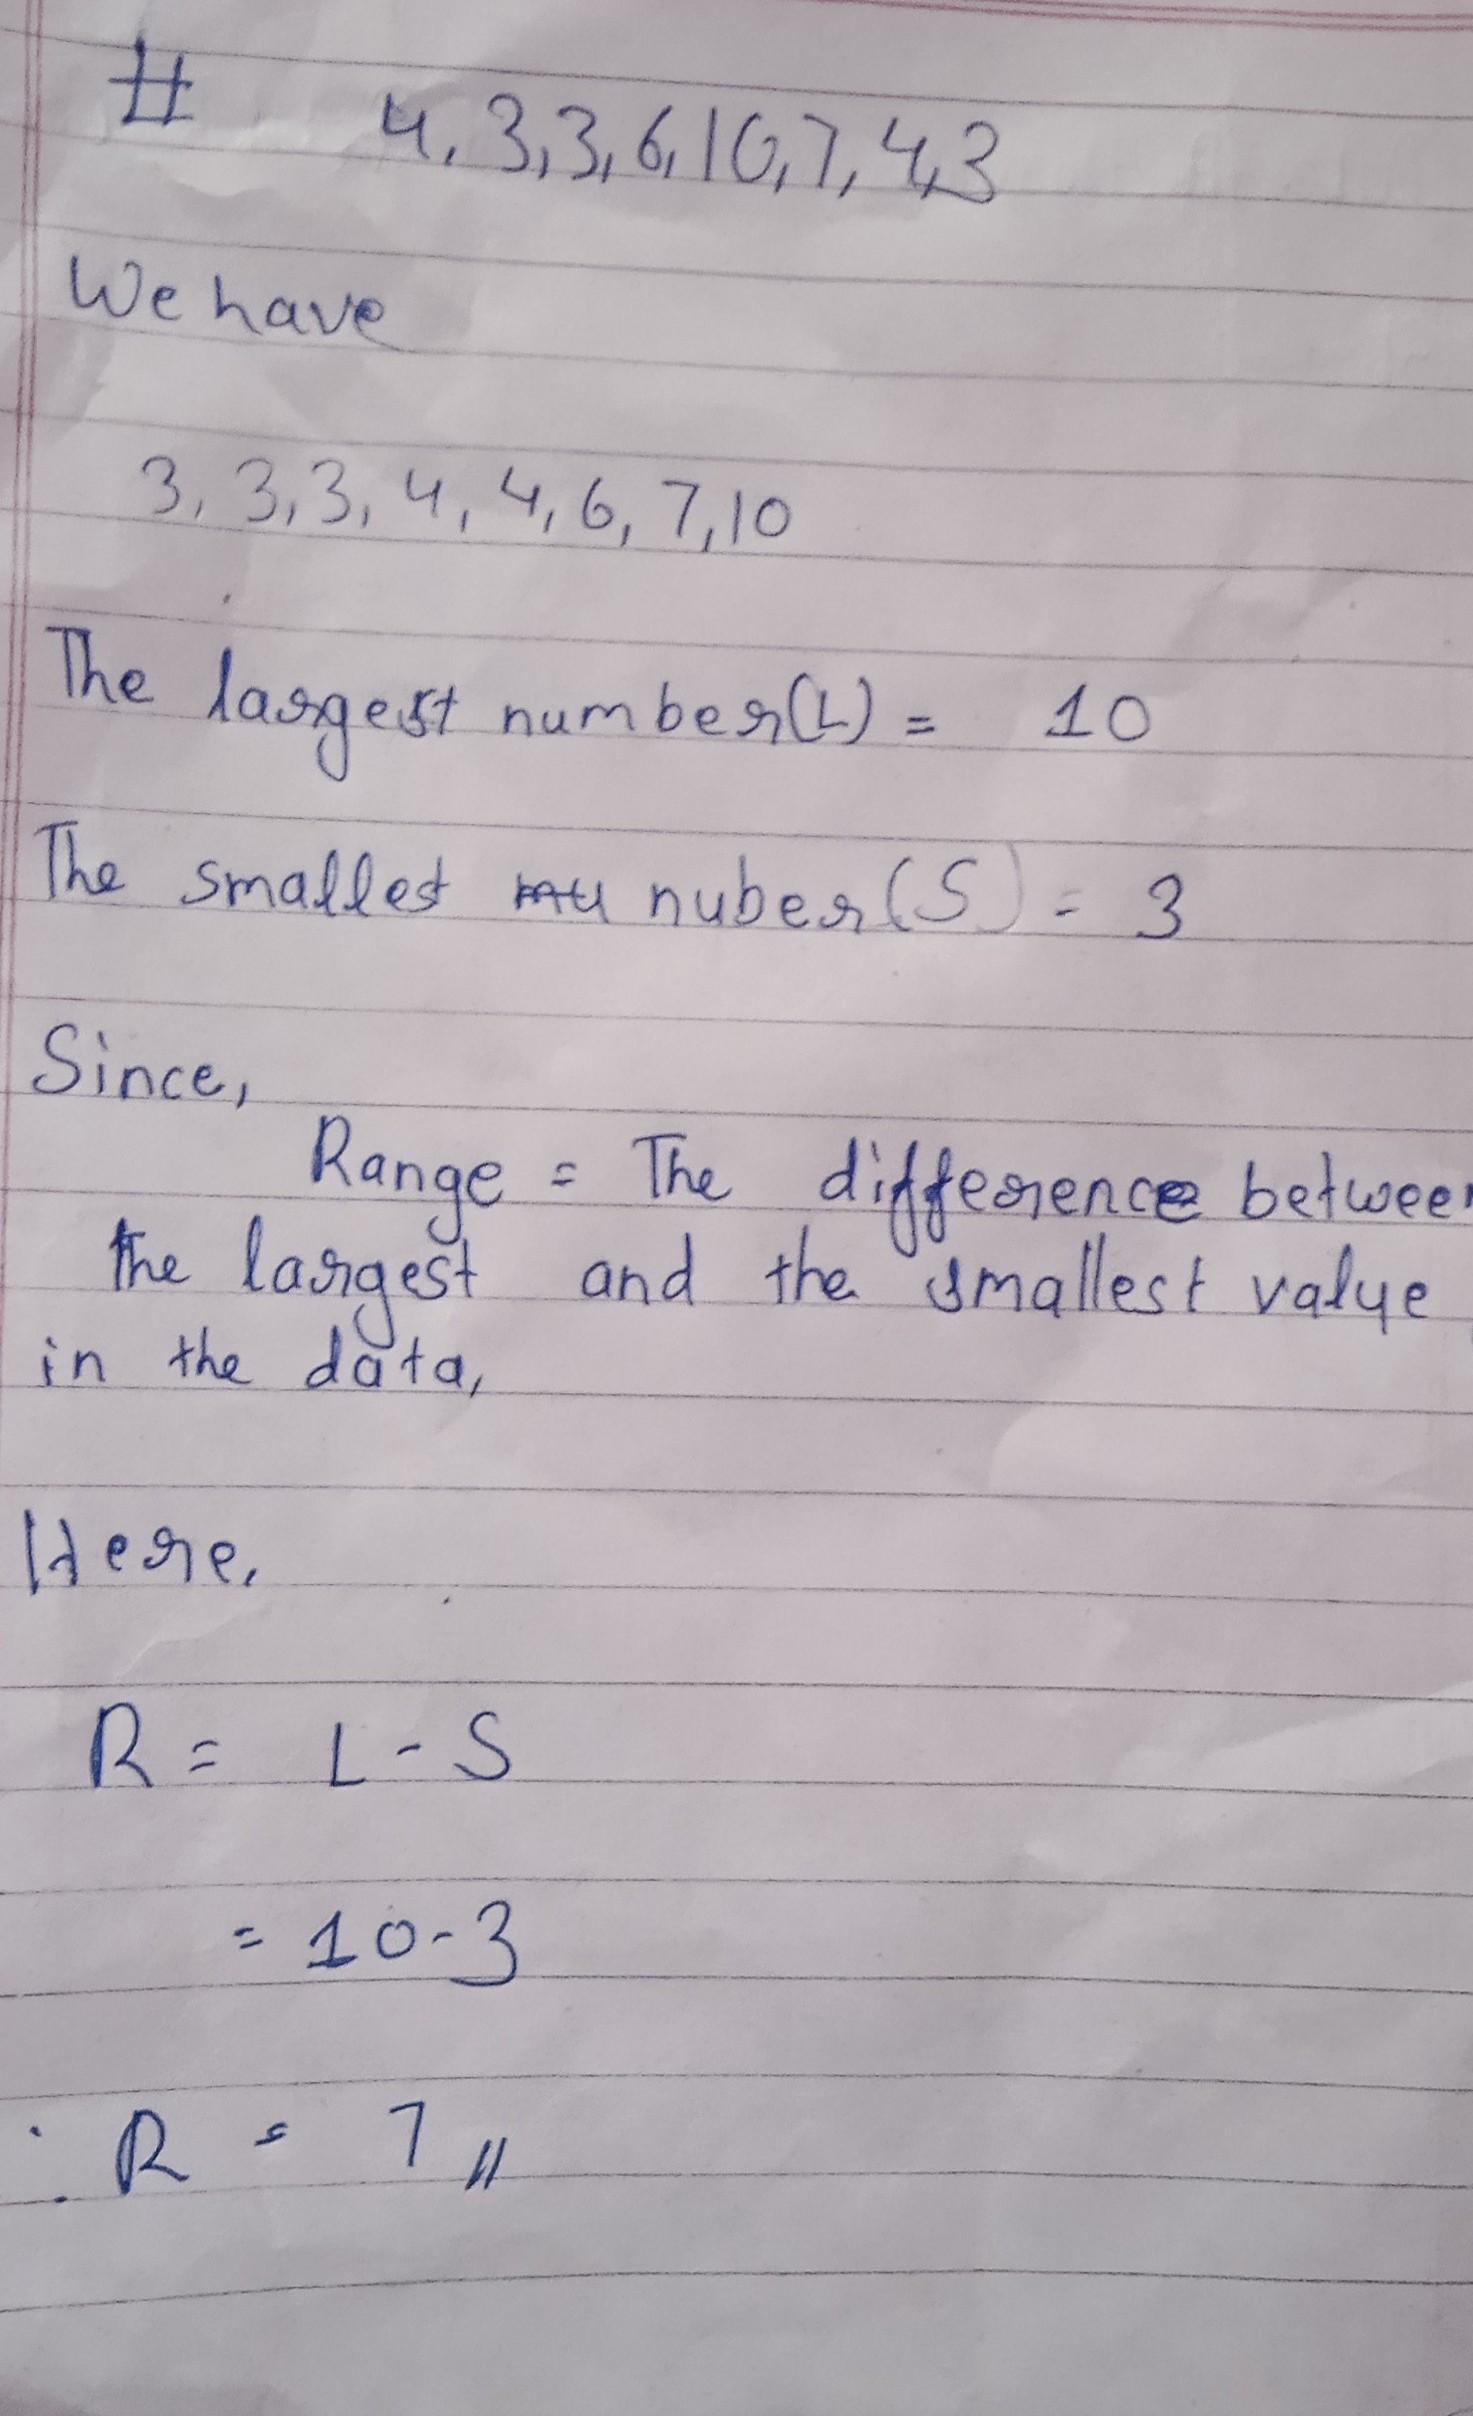 # 4, 3, 3, 6, 10, 7, 4, 3
We have
3, 3, 3, 4, 4, 6, 7, 10
The largest number(L) = 10
The smallest nuber(S) = 3
Since,
Range = The difference between
the largest and the smallest value
in the data,
Here,
R = L - S
= 10 - 3
∴ R = 7 //